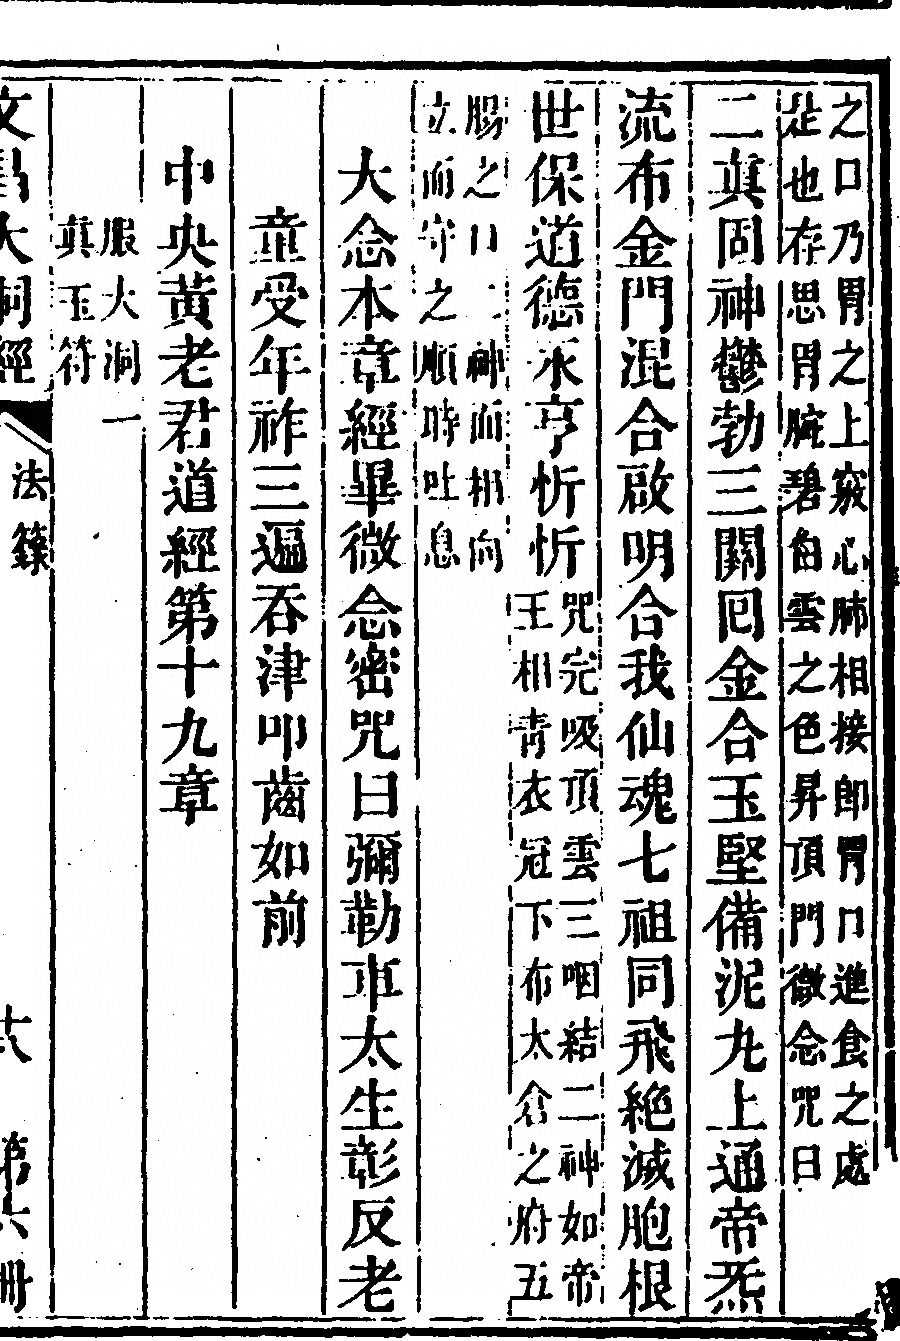 之口乃胃之上竅心肺相接卽胃口進食之處
是也存思胃脘碧白雲之色昇頂門微念咒曰
二眞固神鬱勃三關囘金合玉堅備泥丸上通帝炁
流布金門混合啟明合我仙魂七祖同飛絶滅胞根
世保道德永亨忻忻
咒完吸頂雲三咽結二神如帝
王相靑衣冠下布太倉之府五
腸之口二神面相向
立而守之順時吐息
大念本章經畢微念密咒曰彌勒車太生彰反老
童受年祚三遍吞津叩齒如前
中央黃老君道經第十九章
服大洞一
眞玉符
文昌大洞經
法籙
十八
第六冊